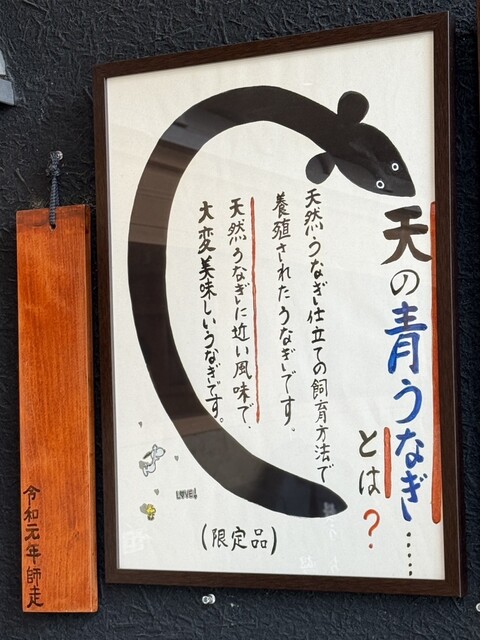 天の青うなぎ……
とは？
天然うなぎ仕立ての飼育方法で
養殖されたうなぎです。
天然うなぎに近い風味で、
大変美味しいうなぎです。
LOVE!
(限定品)
令和元年師走